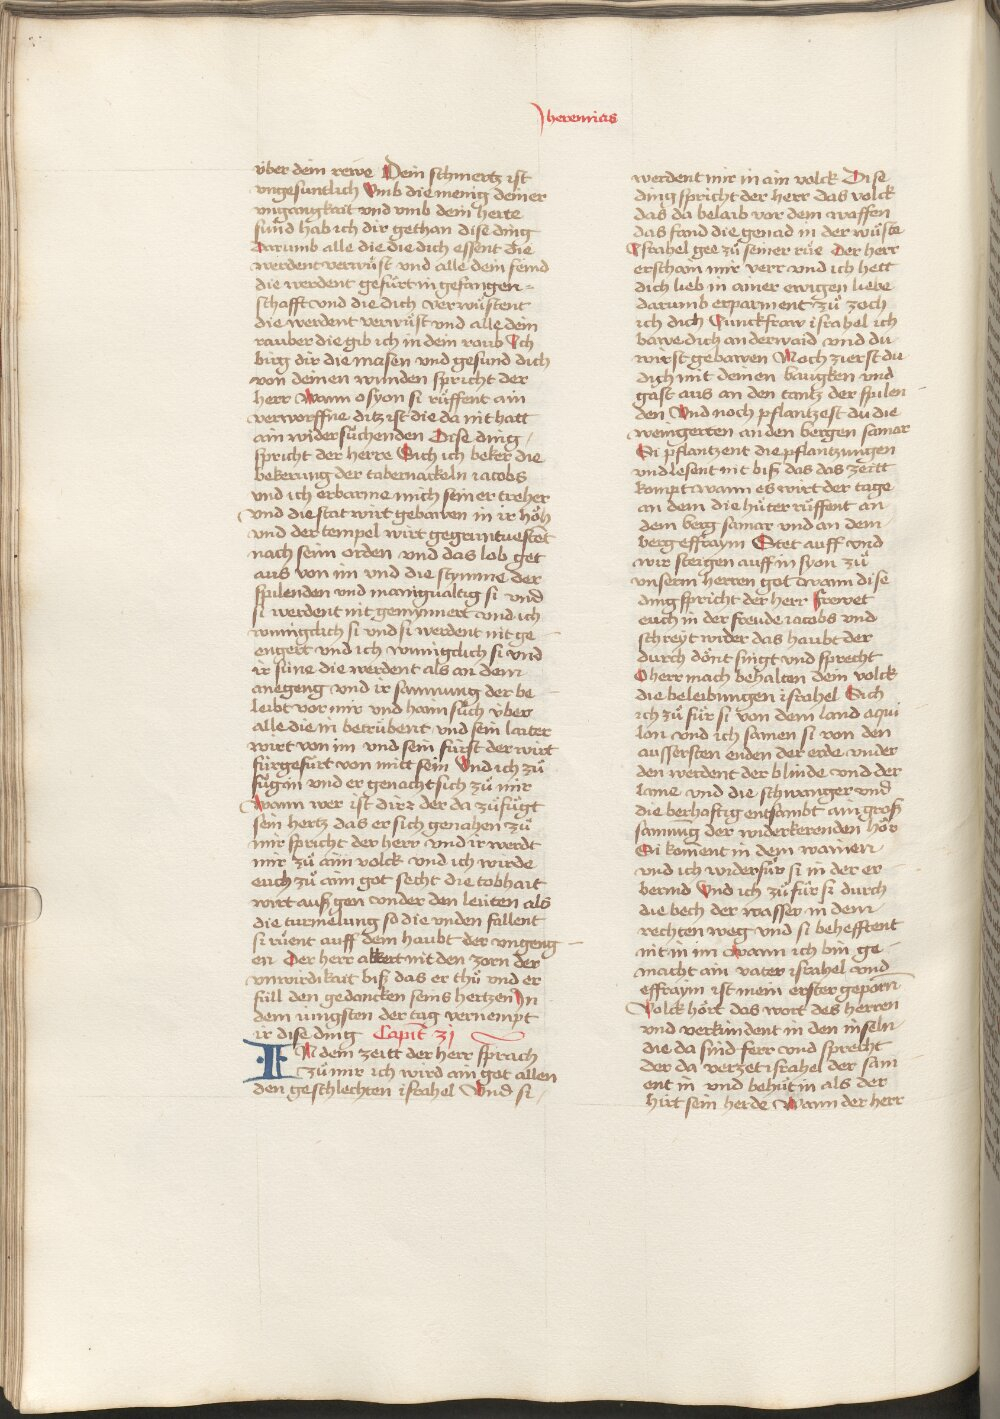 Jheremias
über dein reẅe Dein schmertz ist
vngesuntlich Vmb die menig deiner
vngangkait vnd vmb dein herte
sund hab ich dir gethan dise ding
Darumb alle die die dich essent die
werdent verwüst vnd alle dein feind
die werdent gefürt in gefangen-
schafft vnd die dich verwüstent
die werdent verwüst vnd alle dein
rauber die gib ich in dem raub Ich
birg dir die masen vnd gesund dich
von deinen wunden spricht der
herr Wann o syon si rüffent ain
verworffne ditz ist die da nit hatt
ain widersuchenden Dise ding
spricht der herre Sich ich beker die
bekerung der tabernackeln iacobs
vnd ich erbarme mich seiner techer
vnd die stat wirt gebawen in ir höh
vnd der tempel wirt gegruntuestet
nach seim orden vnd das lob get
aus von im vnd die stymme der
spilenden vnd manigualtig si vnd
si werdent nit gemynnert vnd ich
wunigclich si vnd si werdent nit ge
engert vnd ich wunigclich si vnd
ir süne die werdent als an dem
anegeng vnd ir samnung der be
leibt vor mir vnd haimsuch über
alle die in betrübent vnd sein laiter
wirt von im vnd sein fürst der wirt
fürgefürt von mitt sein Vnd ich zu
fügin vnd er genacht sich zu mir
Wann wer ist dirz der da zufügt
sein hertz das er sich genahen zu
mir spricht der herr vnd ir werdt
mir zu aim volck vnd ich wirde
euch zu aim got secht die tobhait
wirt ausz gen vonder den leuten als
die turmelung so die vnden fallent
si rüent auff dem haubt der vngeng
en Der herr akkert nit den zorn der
vnwirdikait bisz das er thu vnd er
füll den gedancken seins hertzen In
dem iungsten der tag vernempt
ir dise ding Capit 31
IN dem zeitt der herr sprach
zu mir ich wird ain got allen
den geschlechten israhel Vnd si
werdent mir in ain volck Dise
ding spricht der herr das volck
das da belaib vor dem waffen
das fand die genad in der wüste
Israhel gee zu seiner rüe Der herr
erschain mir verr vnd ich hett
dich lieb in ainer ewigen liebe
darumb erparment zu zoch
ich dich Iunckfraw israhel ich
bawe dich anderwaid vnd du
wirst gebawen Noch zierst du
dich mit deinen baugken vnd
gast aus an den tantz der spilen
den Vnd noch pflantzest du die
weingerten an den bergen samar
Si pflantzent die pflantzungen
vnd lesent nit bisz das das zeitt
kompt wann es wirt der tage
an dem die hüter rüffent an
dem berg samar vnd an dem
berg effraym Stet auff vnd
wir steigen auff in syon zu
vnserm herren got Wann dise
ding spricht der herr Frewet
euch in der freude iacobs vnd
schreyt wider das haubt der
durch dönt singt vnd sprecht
O herr mach behalten dein volck
die beleibungen israhel Sich
ich zu für si von dem land aqui
lon vnd ich samen si von den
aussersten enden der erde vnder
den werdent der blinde vnd der
lame vnd die schwanger vnd
die berhafftig entsambt ain grosz
samnung der widerkerenden hör
Si koment in dem wainen
vnd ich widerfür si in der er
bermd Vnd ich zu für si durch
die bech der wasser in dem
rechten weg vnd si behefftent
nit in im Wann ich bin ge
macht ain vater israhel vnd
effraym ist mein erster geporn
Volck hört das wort des herren
vnd verkündent in den inseln
die da sind ferr vnd sprecht
der da verzet israhel der sam
ent in vnd behüt in als der
hirt sein herde Wann der herr